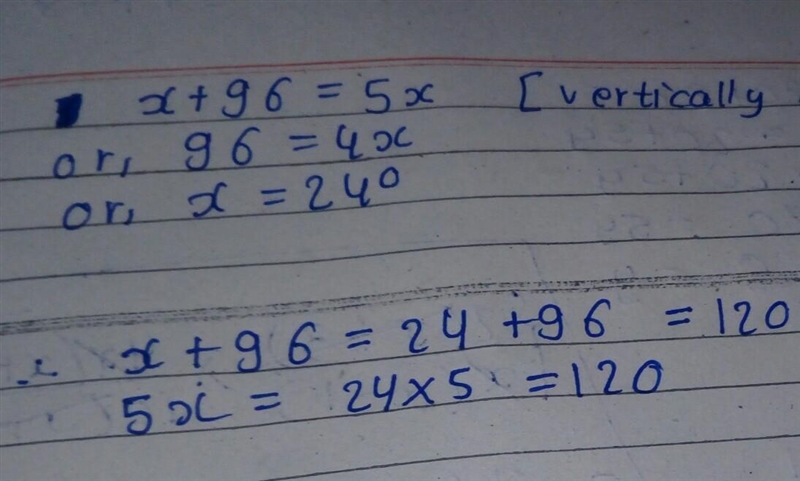 x + 96 = 5x [vertically
or, 96 = 4x
or, x = 24°
∴ x + 96 = 24 + 96 = 120
5x = 24 × 5 = 120